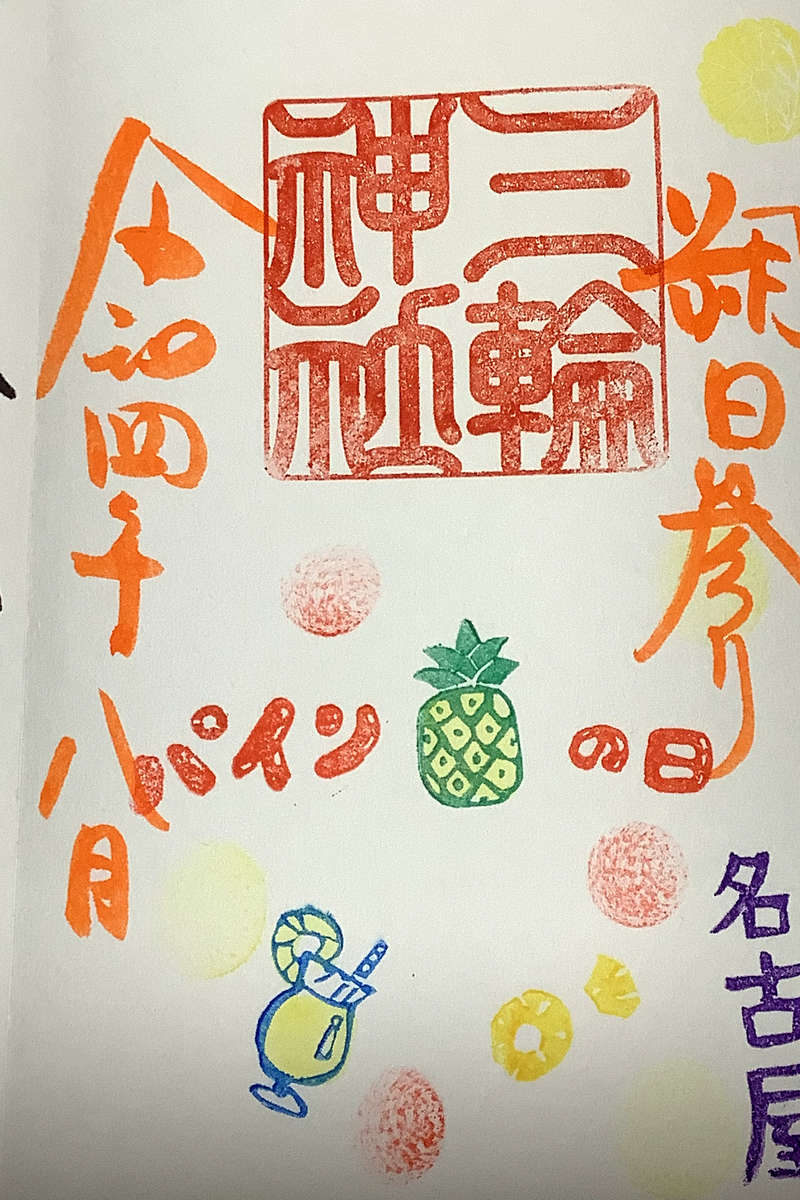 朔日参り
三輪
神社
令和四年八月
パインの日
名古屋